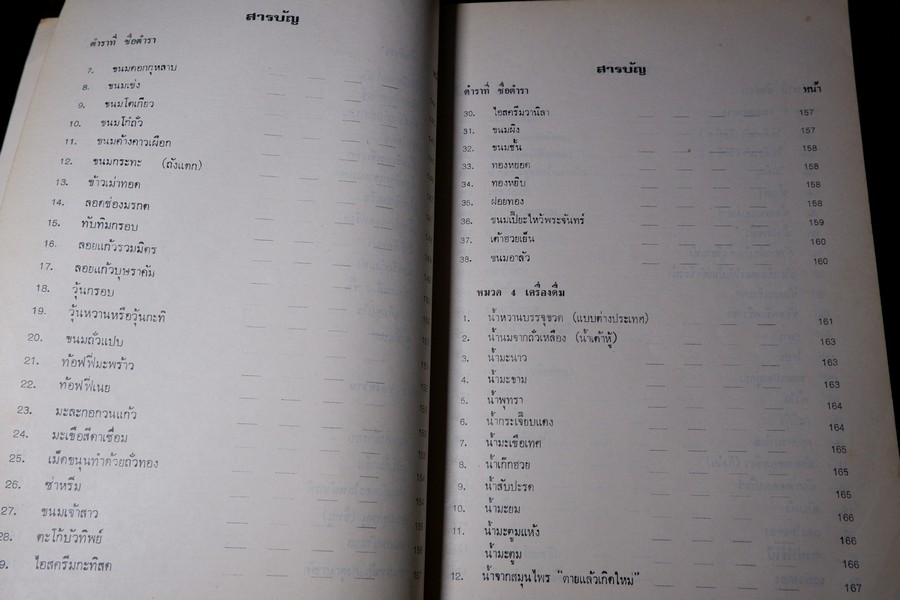 สารบัญ
ตำราที่ ชื่อตำรา
7. ขนมดอกกุหลาบ
8. ขนมเข่ง
9. ขนมโตเกียว
10. ขนมโก๋ถั่ว
11. ขนมค้างคาวเผือก
12. ขนมกระทะ (ถังแตก)
13. ข้าวเม่าทอด
14. ลอดช่องมรกต
15. ทับทิมกรอบ
16. ลอยแก้วรวมมิตร
17. ลอยแก้วบุษราคัม
18. วุ้นกรอบ
19. วุ้นหวานหรือวุ้นกะทิ
20. ขนมถั่วแปบ
21. ท้อฟฟี่มะพร้าว
22. ท้อฟฟี่เนย
23. มะละกอกวนแก้ว
24. มะเขือสีดาเชื่อม
25. เม็ดขนุนทำด้วยถั่วทอง
26. ซ่าหริ่ม
27. ขนมเจ้าสาว
28. ตะโก้บัวทิพย์
9. ไอสครีมกะทิสด
สารบัญ
ตำราที่ ชื่อตำรา หน้า
30. ไอสครีมวานิลา 157
31. ขนมผิง 157
32. ขนมชั้น 158
33. ทองหยอด 158
34. ทองหยิบ 158
35. ฝอยทอง 158
36. ขนมเปี๊ยะไหว้พระจันทร์ 159
37. เต้าฮวยเย็น 160
38. ขนมอาลัว 160
หมวด 4 เครื่องดื่ม
1. น้ำหวานบรรจุขวด (แบบต่างประเทศ) 161
2. น้ำนมจากถั่วเหลือง (น้ำเต้าหู้) 163
3. น้ำมะนาว 163
4. น้ำมะขาม 163
5. น้ำพุทรา 164
6. น้ำกระเจี๊ยบแดง 164
7. น้ำมะเขือเทศ 165
8. น้ำเก๊กฮวย 165
9. น้ำสับปะรด 165
10. น้ำมะยม 166
11. น้ำมะตูมแห้ง 166
น้ำมะตูม 166
12. น้ำจากสมุนไพร "ตายแล้วเกิดใหม่" 167